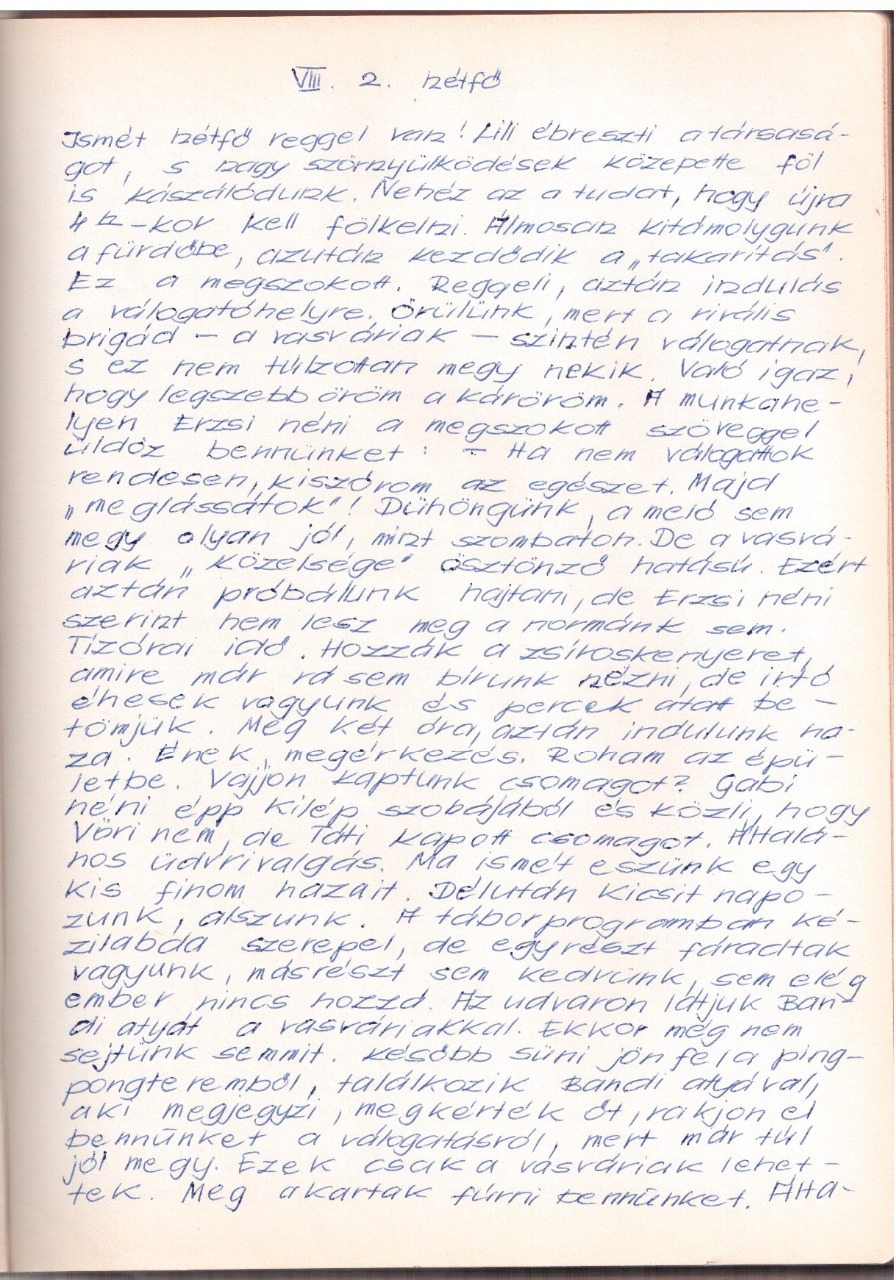 VIII. 2. hétfő
Ismét hétfő reggel van! Lili ébreszti a társasá-
got, s nagy szörnyülködések közepette föl
is kászálódunk. Nehéz az a tudat, hogy újra
4 h-kor kell fölkelni. Álmosan kitámolygunk
a fürdőbe, azután kezdődik a „takarítás”.
Ez a megszokott. Reggeli, aztán indulás
a válogatóhelyre. Örülünk, mert a rivális
brigád – a vasváriak – szintén válogatnak,
s ez nem túlzottan megy nekik. Való igaz,
hogy legszebb öröm a káröröm. A munkahe-
lyen Erzsi néni a megszokott szöveggel
üldöz bennünket: – Ha nem válogattok
rendesen, kiszórom az egészet. Majd
„meglássátok”! Dühöngünk, a meló sem
megy olyan jól, mint szombaton. De a vasvá-
riak „közelsége” ösztönző hatású. Ezért
aztán próbálunk hajtani, de Erzsi néni
szerint nem lesz meg a normánk sem.
Tízórai idő. Hozzák a zsíroskenyeret,
amire már rá sem bírunk nézni, de irtó
éhesek vagyunk és percek alatt be-
tömjük. Még két óra, aztán indulunk ha-
za. Ének, megérkezés. Roham az épü-
letbe. Vajjon kaptunk csomagot? Gabi
néni épp kilép szobájából és közli, hogy
Vöri nem, de Táti kapott csomagot. Általá-
nos üdvrivalgás. Ma ismét eszünk egy
kis finom hazait. Délután kicsit napo-
zunk, alszunk. A táborprogramban ké-
zilabda szerepel, de egyrészt fáradtak
vagyunk, másrészt sem kedvünk, sem elég
ember nincs hozzá. Az udvaron látjuk Ban-
di atyát a vasváriakkal. Ekkor még nem
sejtünk semmit. Később Süni jön fel a ping-
pongteremből, találkozik Bandi atyával,
aki megjegyzi, megkérték őt, rakjon el
bennünket a válogatásról, mert már túl
jól megy. Ezek csak a vasváriak lehet-
tek. Meg akartak fúrni bennünket. Álta-